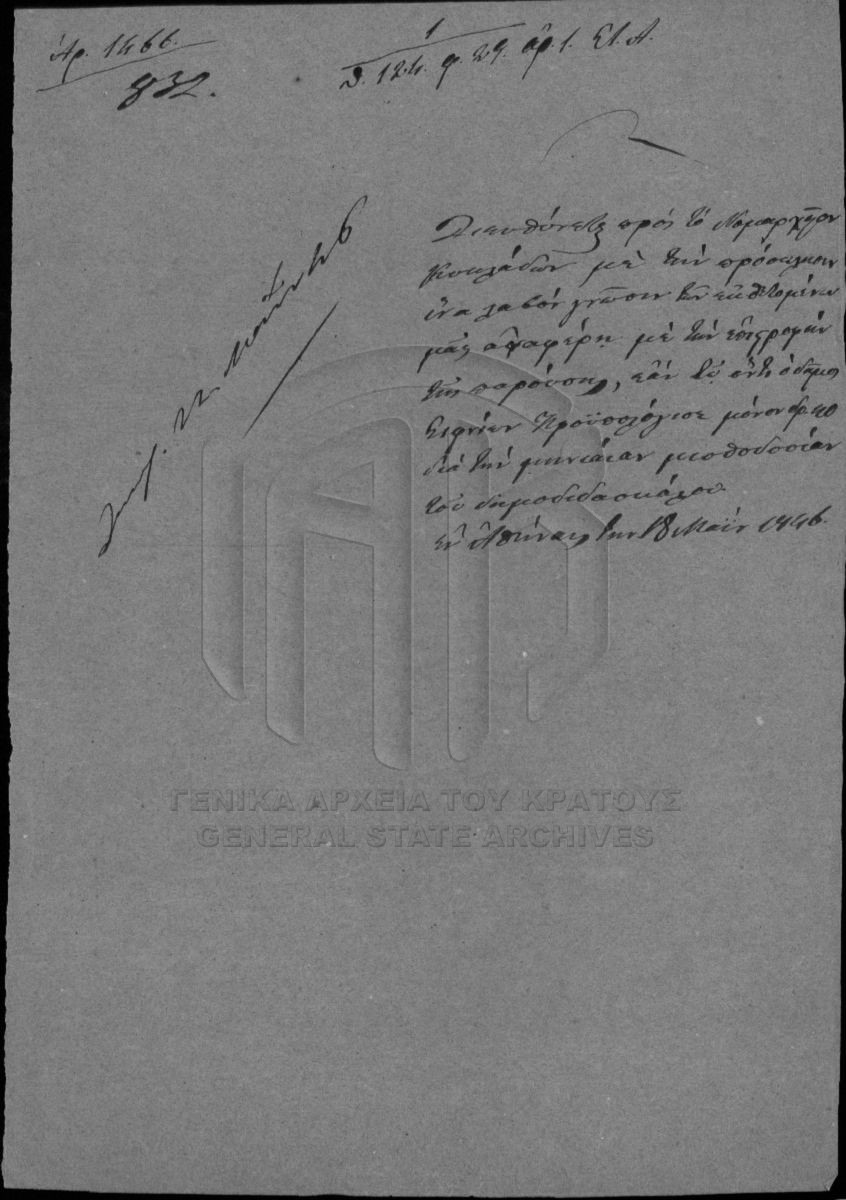 Ἀρ. 1466.
832.
1
Θ. 124. φ. 29. ἀρ. 1. Ει. Α.
Διευθύνεται πρὸς τὸ Νομαρχεῖον
Κυκλάδων μὲ τὴν πρόσκλησιν
ἵνα λαβὸν γνῶσιν τῶν ἐκθετομένων
μᾶς ἀναφέρῃ μὲ τὴν ἐπιστροφὴν
τῆς παρούσης, ἐὰν τῷ ὄντι ὁ δῆμος
Σιφνίων προϋπολόγισε μόνον δρ. 40
διὰ τὴν μηνιαίαν μισθοδοσίαν
τοῦ δημοδιδασκάλου.
Ἐν Ἀθήναις τὴν 18 Μαΐου 1846.
ΓΕΝΙΚΑ ΑΡΧΕΙΑ ΤΟΥ ΚΡΑΤΟΥΣ
GENERAL STATE ARCHIVES